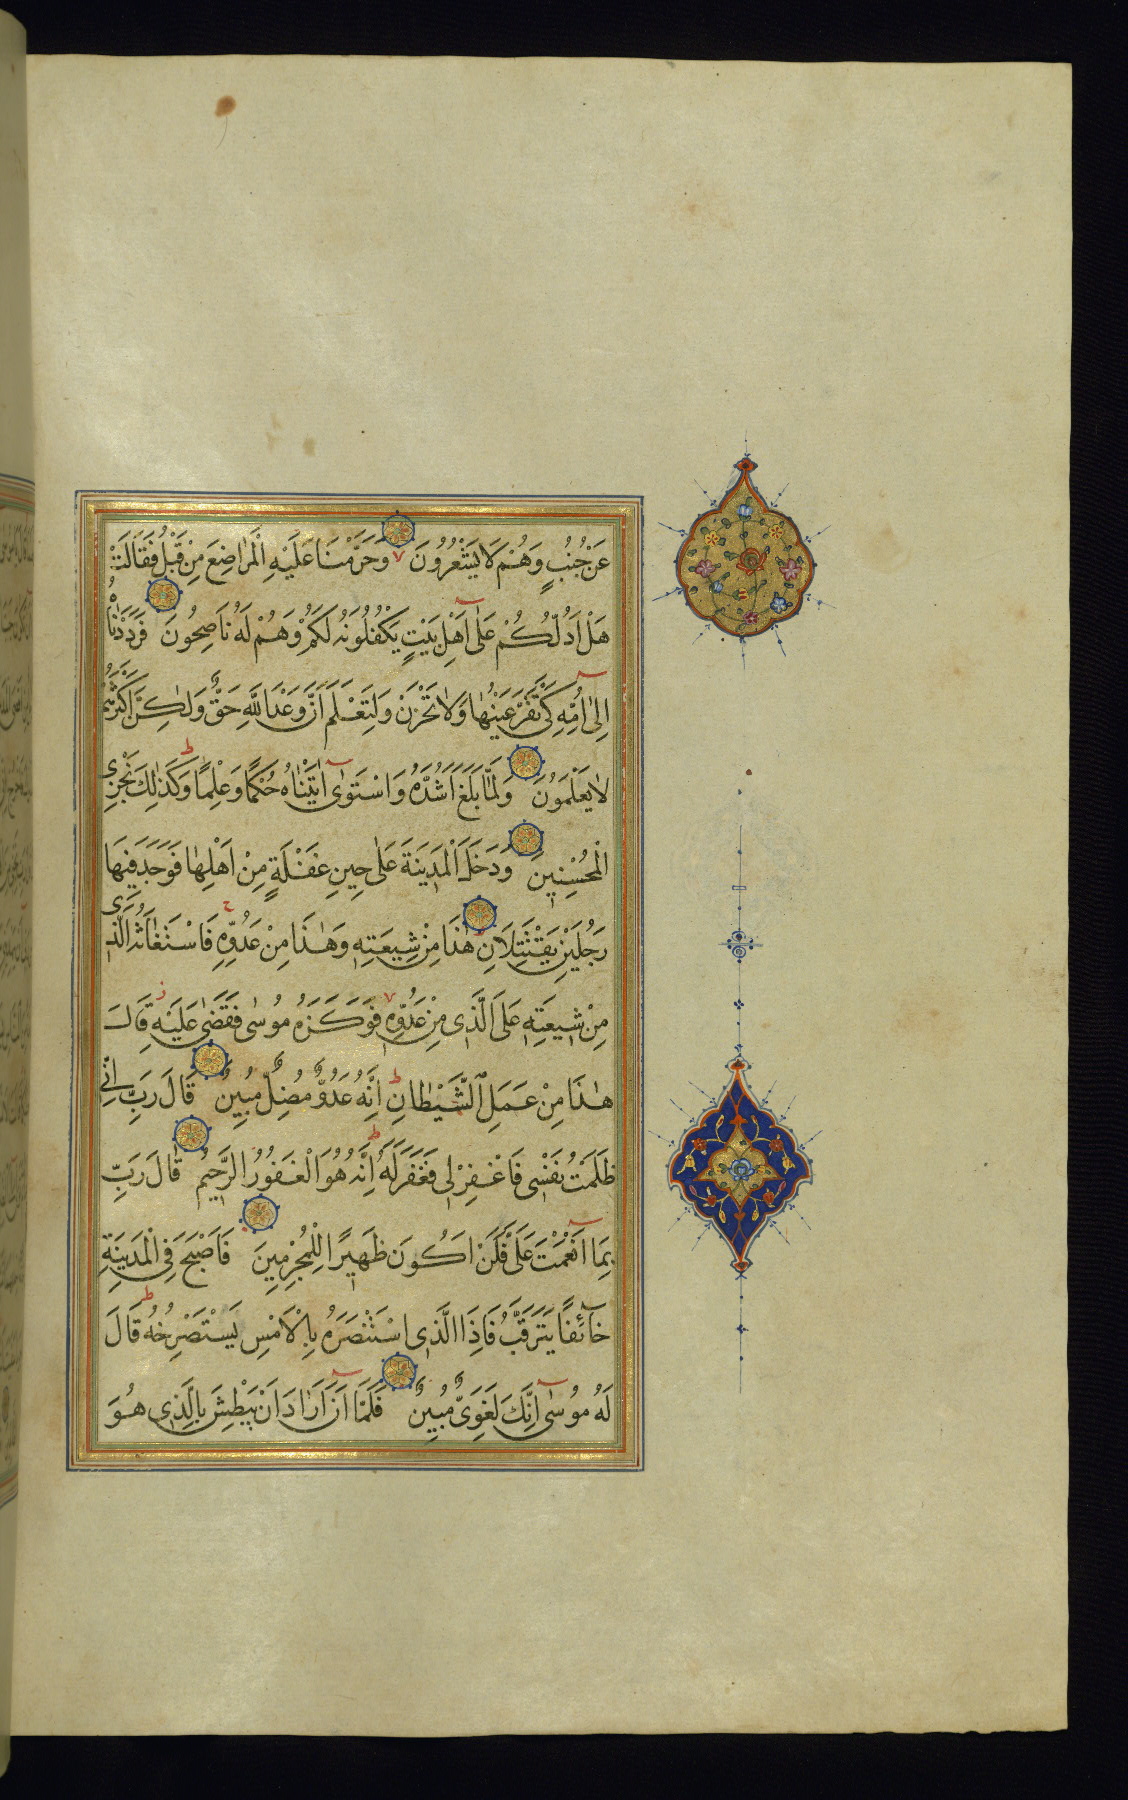 عَنْ جُنُبٍ وَهُمْ لَا يَشْعُرُونَ وَحَرَّمْنَا عَلَيْهِ الْمَرَاضِعَ مِنْ قَبْلُ فَقَالَتْ
هَلْ اَدُلُّكُمْ عَلٰى اَهْلِ بَيْتٍ يَكْفُلُونَهُ لَكُمْ وَهُمْ لَهُ نَاصِحُونَ فَرَدَدْنَاهُ
اِلٰى اُمِّهِ كَىْ تَقَرَّ عَيْنُهٰا وَلٰا تَحْزَنَ وَلِتَعْلَمَ اَنَّ وَعْدَ اللّٰهِ حَقٌّ وَلٰكِنَّ اَكْثَرَهُمْ
لٰا يَعْلَمُونَ وَلَمَّا بَلَغَ اَشُدَّهُ وَاسْتَوٰى اٰتَيْنٰاهُ حُكْمًا وَعِلْمًا وَكَذٰلِكَ نَجْزِى
الْمُحْسِنِينَ وَدَخَلَ الْمَدِينَةَ عَلٰى حِينِ غَفْلَةٍ مِنْ اَهْلِهٰا فَوَجَدَ فِيهَا
رَجُلَيْنِ يَقْتَتِلَانِ هٰذَا مِنْ شِيعَتِهِ وَهٰذَا مِنْ عَدُوِّهِ فَاسْتَغٰاثَهُ الَّذِى
مِنْ شِيعَتِهِ عَلَى الَّذِى مِنْ عَدُوِّهِ فَوَكَزَهُ مُوسٰى فَقَضٰى عَلَيْهِ قَالَ
هٰذَا مِنْ عَمَلِ الشَّيْطٰانِ اِنَّهُ عَدُوٌّ مُضِلٌّ مُبِينٌ قَالَ رَبِّ اِنِّى
ظَلَمْتُ نَفْسِى فَاغْفِرْ لِى فَغَفَرَ لَهُ اِنَّهُ هُوَ الْغَفُورُ الرَّحِيمُ قَالَ رَبِّ
بِمَا اَنْعَمْتَ عَلَىَّ فَلَنْ اَكُونَ ظَهِيرًا لِلْمُجْرِمِينَ فَاَصْبَحَ فِى الْمَدِينَةِ
خَآئِفًا يَتَرَقَّبُ فَاِذَا الَّذِى اسْتَنْصَرَهُ بِالْاَمْسِ يَسْتَصْرِخُهُ قَالَ
لَهُ مُوسٰى اِنَّكَ لَغَوِىٌّ مُبِينٌ فَلَمَّا اَنْ اَرَادَ اَنْ يَبْطِشَ بِالَّذِى هُوَ